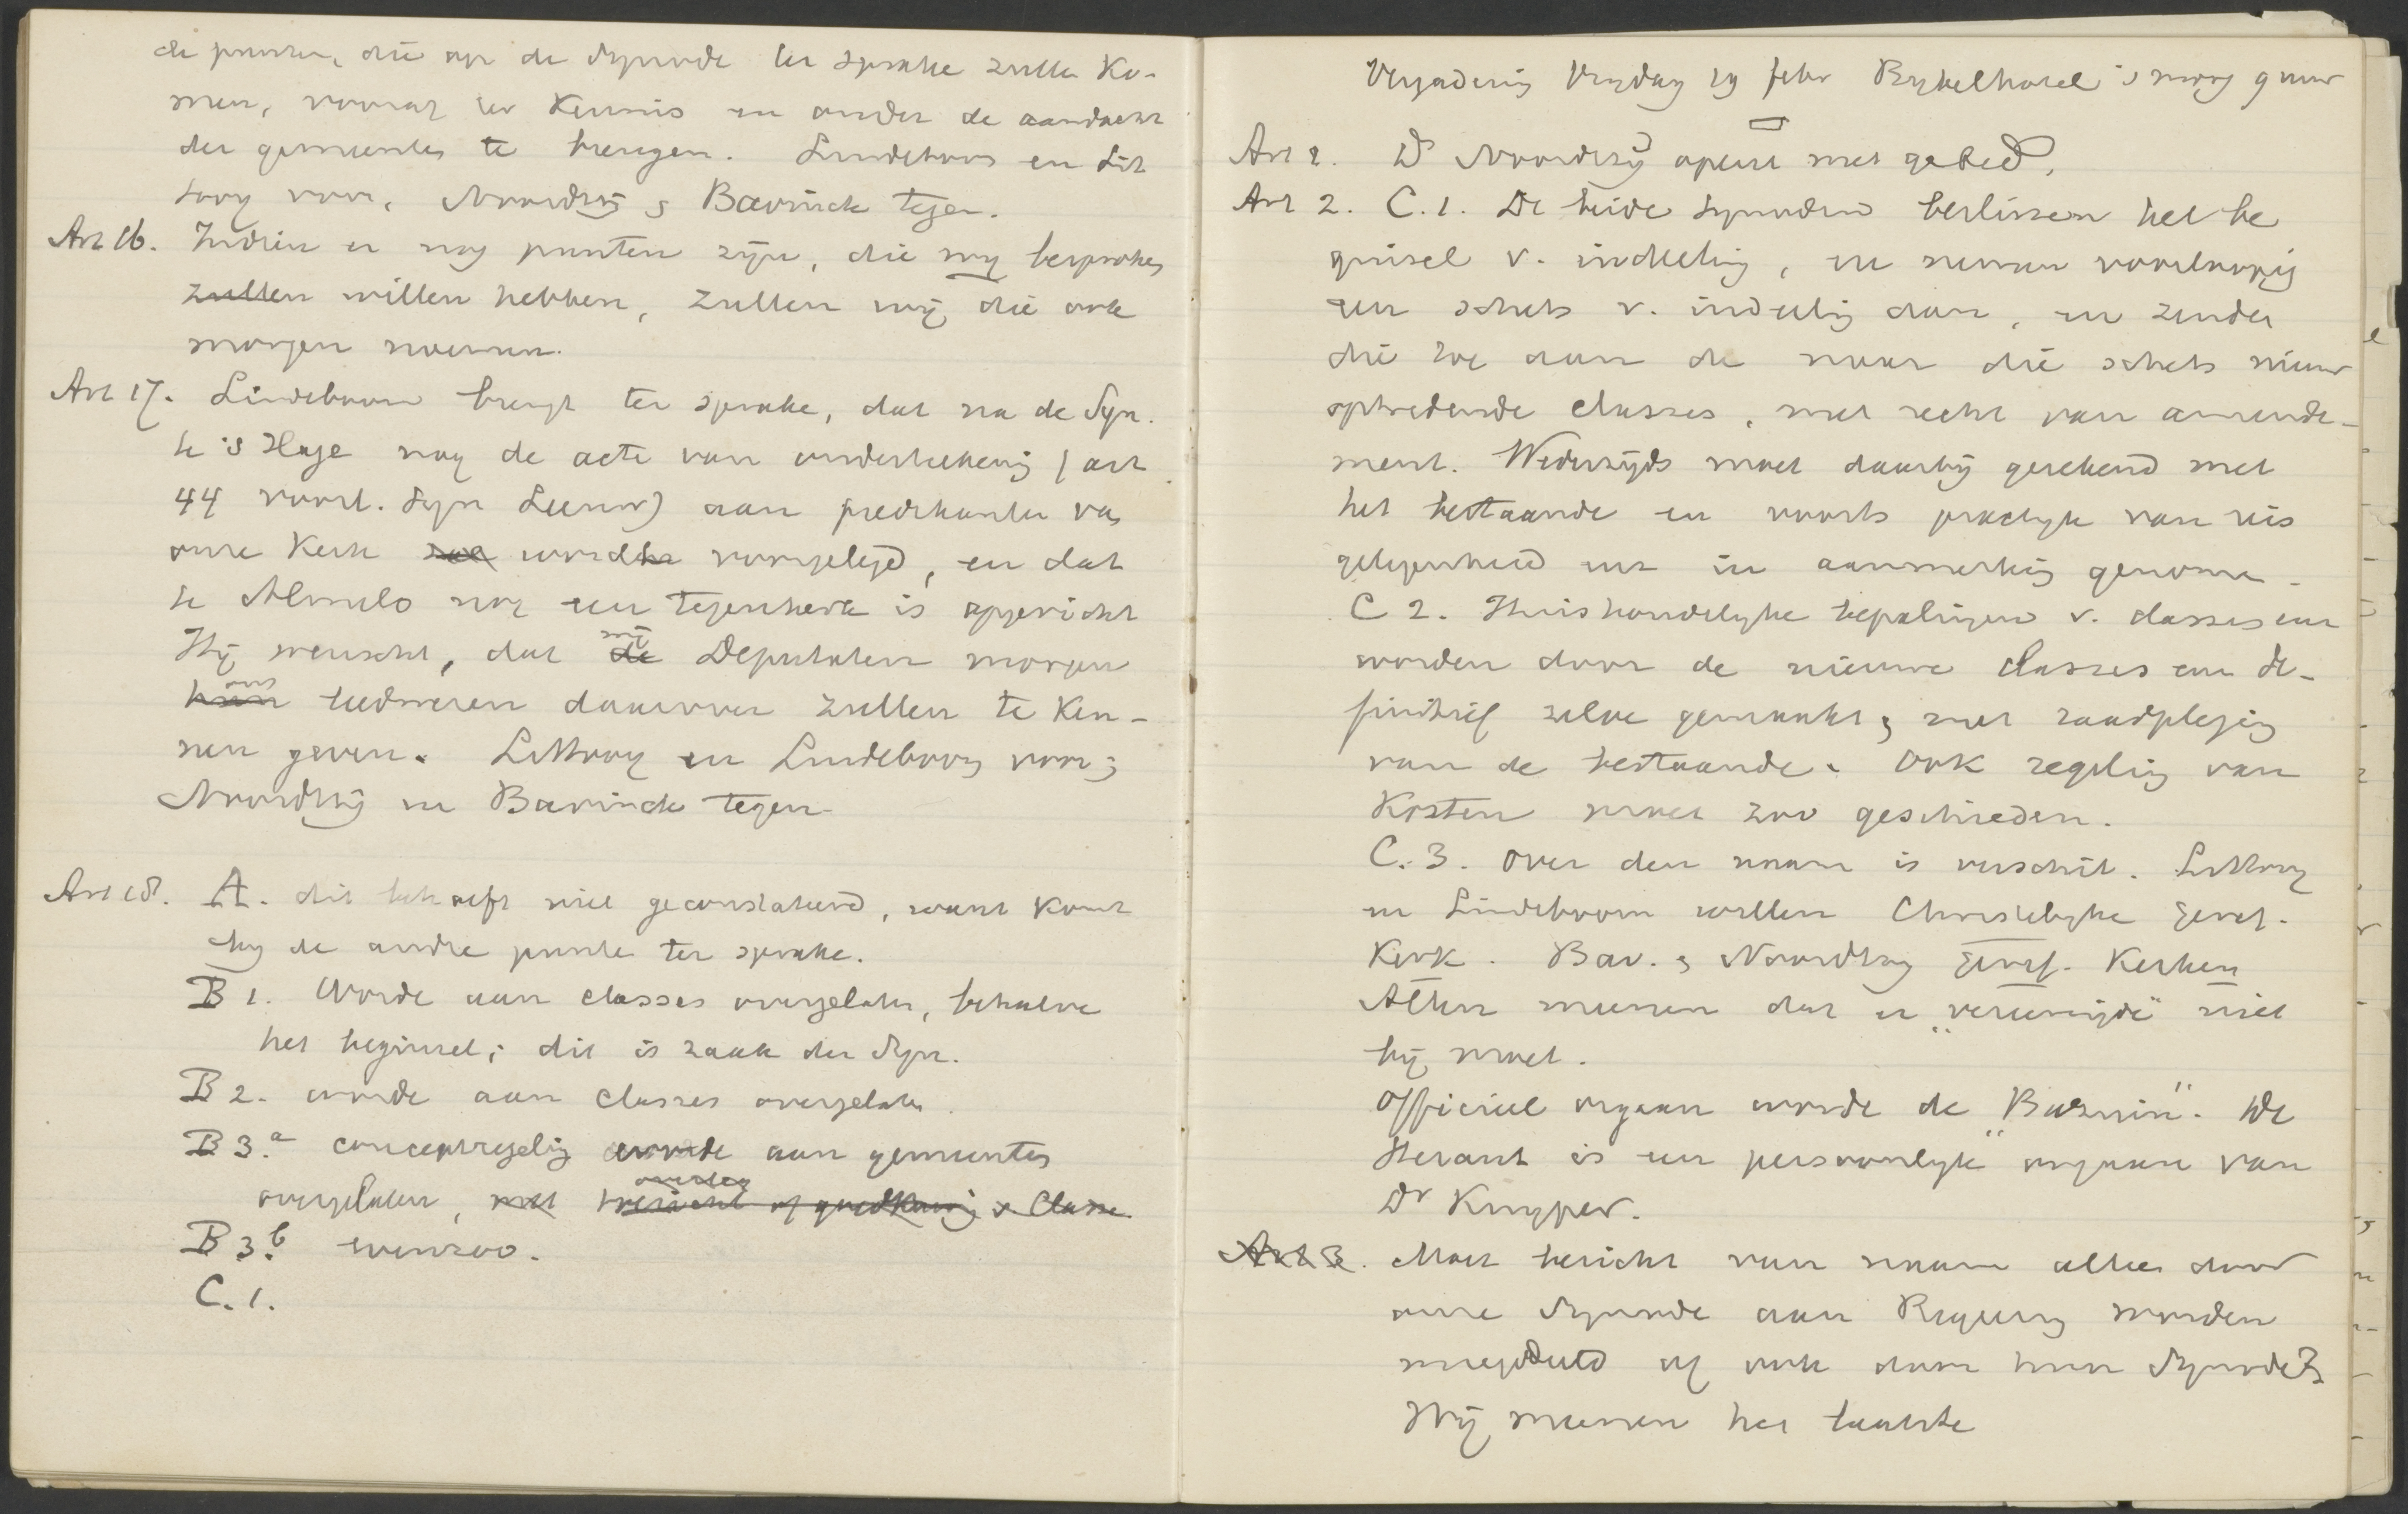 de punten, die op de Synode ter sprake zullen ko-
men, vooraf ter kennis en onder de aandacht
der gemeentes te brengen. Lindeboom en Lit
tooy voor, Noordtzij & Bavinck tegen.
Art 16. Indien er nog punten zijn, die wij besproken
zullen willen hebben, zullen wij die ook
morgen noemen.
Art 17. Lindeboom brengt ter sprake, dat na de Syn.
te 's Hage nog de acte van onderteekening (art
44 voorl. Syn Leeuw) aan predikanten van
onze Kerk zal worden voorgelegd, en dat
te Almelo nog een tegenkerk is opgericht
Hij wenscht, dat de wij Deputaten morgen
hun ons leedwezen daarover zullen te ken-
nen geven. Littooy en Lindeboom voor;
Noordtzij en Bavinck tegen.
Art 18. A. dit behoeft niet geconstateerd, want komt
bij de andre punten ter sprake.
B 1. Worde aan classes overgelaten, behalve
het beginsel; dit is zaak der Syn.
B 2. worde aan classes overgelaten.
B 3.a conceptregeling worde aan gemeentes
overgelaten, met overleg of goedkeuring v Classe.
B 3.b evenzoo.
C. 1.
Vergadering Vrijdag 19 febr Bijbelhotel 's morg 9 uur
Art 1. Ds Noordtzij opent met gebed.
Art 2. C. 1. De beide Synoden beslissen het be
ginsel v. indeeling, en nemen voorloopig
een schets v. indeeling aan, en zenden
die toe aan de naar die schets nieuw
optredende classes, met recht van amende-
ment. Wederzijds moet daarbij gerekend met
het bestaande en voorts practijk van reis
gelegenheid enz in aanmerking genomen.
C 2. Huishoudelijke bepalingen v. classes enz
worden door de nieuwe classes enz de-
finitief zelve gemaakt, met raadpleging
van de bestaande. Ook regeling van
kosten moet zoo geschieden.
C. 3. Over den naam is verschil. Littooy
en Lindeboom willen Christelijke Geref.
Kerk. Bav. & Noordtzij Geref. Kerken
Allen meenen dat er "vereenigde" niet
bij moet.
Officieel orgaan worde de "Bazuin". De
Heraut is een "persoonlijk" orgaan van
Dr Kuyper.
Art 3. Moet bericht van naam alleen door
onze Synode aan Regering worden
meegedeeld of ook door hun Synode?
Wij meenen het laatste